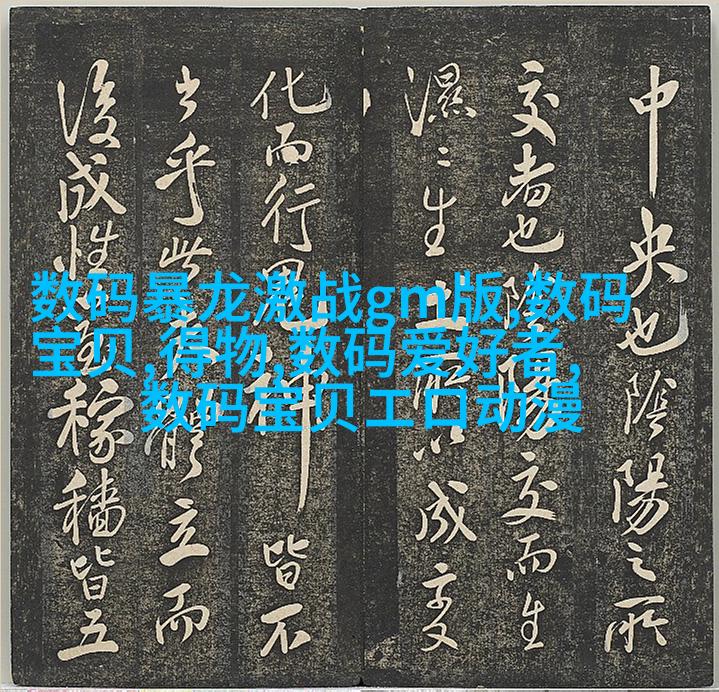 数码暴龙激战gm版,数码
宝贝,得物,数码爱好者,
数码宝贝工口动漫
中央也陰陽之所
交者也陰陽交而生
濕〻生土所以成變
化而行鬼神皆不
乎此體立而
後成性至稼穡皆五